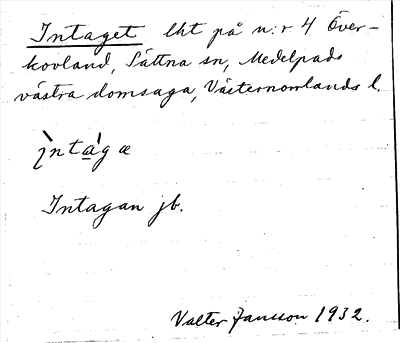 Intaget lht på n:r 4 Över-
kovland, Sättna sn, Medelpads
västra domsaga, Västernorrlands l.
ìntá̱gæ
Intagan jb.
Valter Jansson 1932.